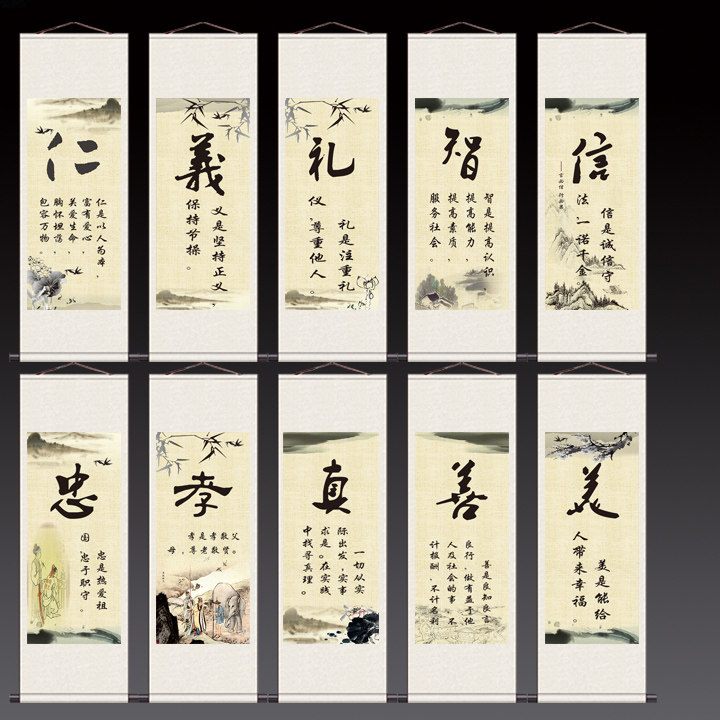 仁
仁是以人为本，
富有爱心
关爱生命，
胸怀坦荡，
包容万物。
義
义是坚持正义，
保持节操。
礼
礼是注重礼
仪，尊重他人。
智
智是提高认识，
提高能力，
提高素质，
服务社会。
信
信是诚信守
法，一诺千金。
忠
忠是热爱祖
国，忠于职守。
孝
孝是孝敬父
母，尊老敬贤。
真
一切从实
际出发，实事
求是。在实践
中找寻真理。
善
善是良知良言
良行，做有益于他
人及社会的事，不
计报酬，不计名利
美
美是能给
人带来幸福。